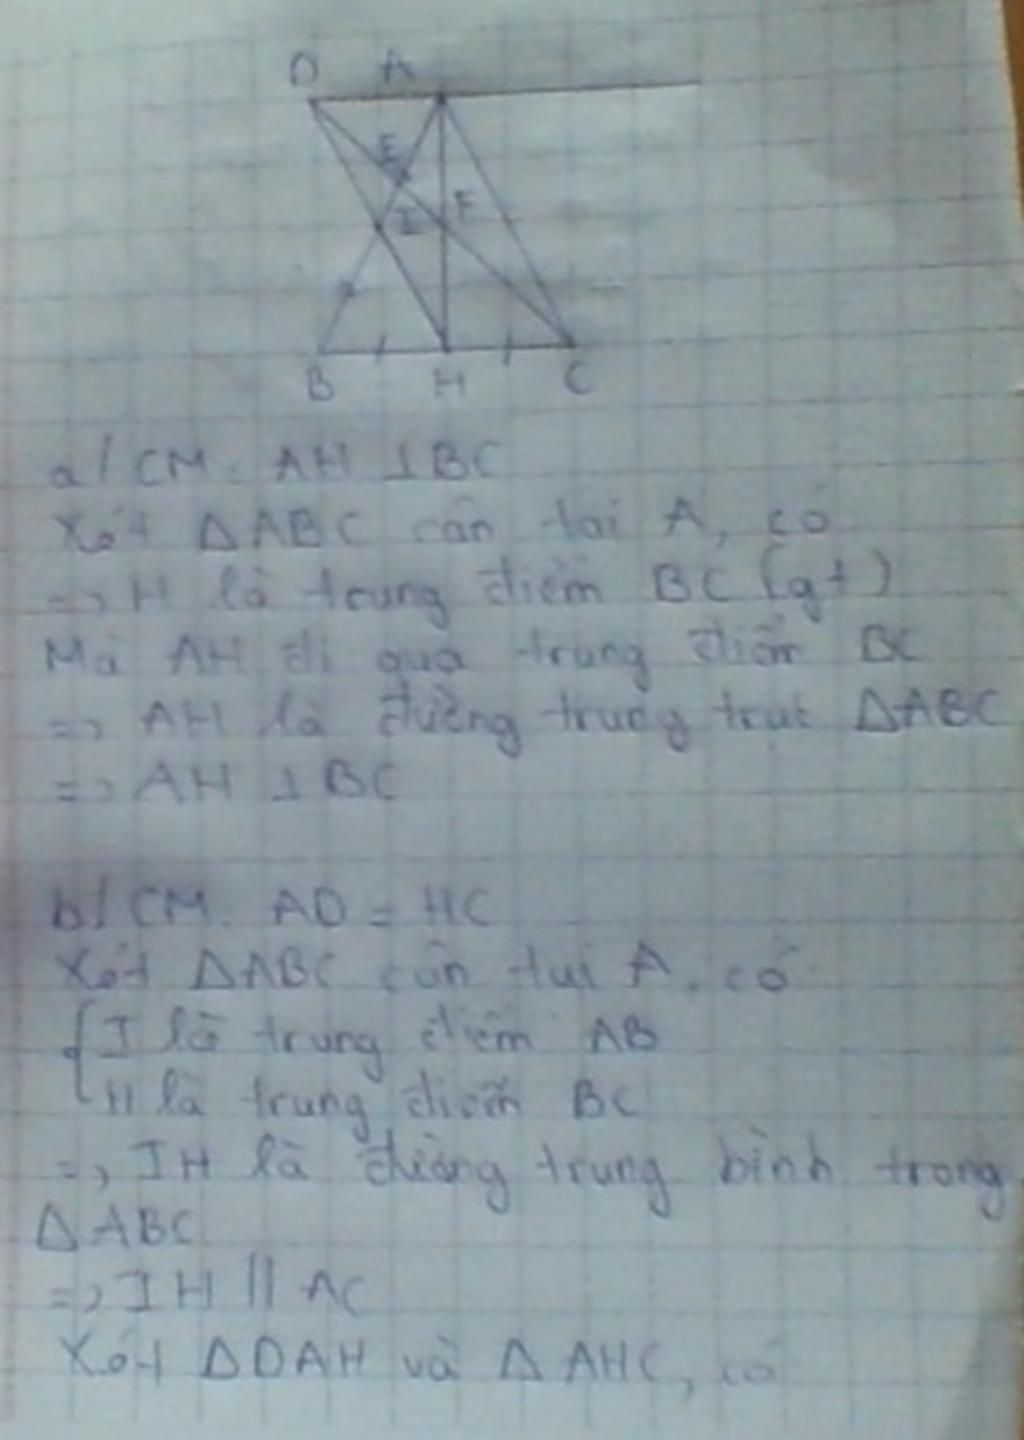 D A
E
I F
B H C
a/ CM. AH ⊥ BC
Xét ΔABC cân tại A, có
=> H là trung điểm BC (gt)
Mà AH đi qua trung điểm BC
=> AH là đường trung trực ΔABC
=> AH ⊥ BC
b/ CM. AD = HC
Xét ΔABC cân tại A, có
{ I là trung điểm AB
H là trung điểm BC
=> IH là đường trung bình trong
ΔABC
=> IH // AC
Xét ΔDAH và ΔAHC, có